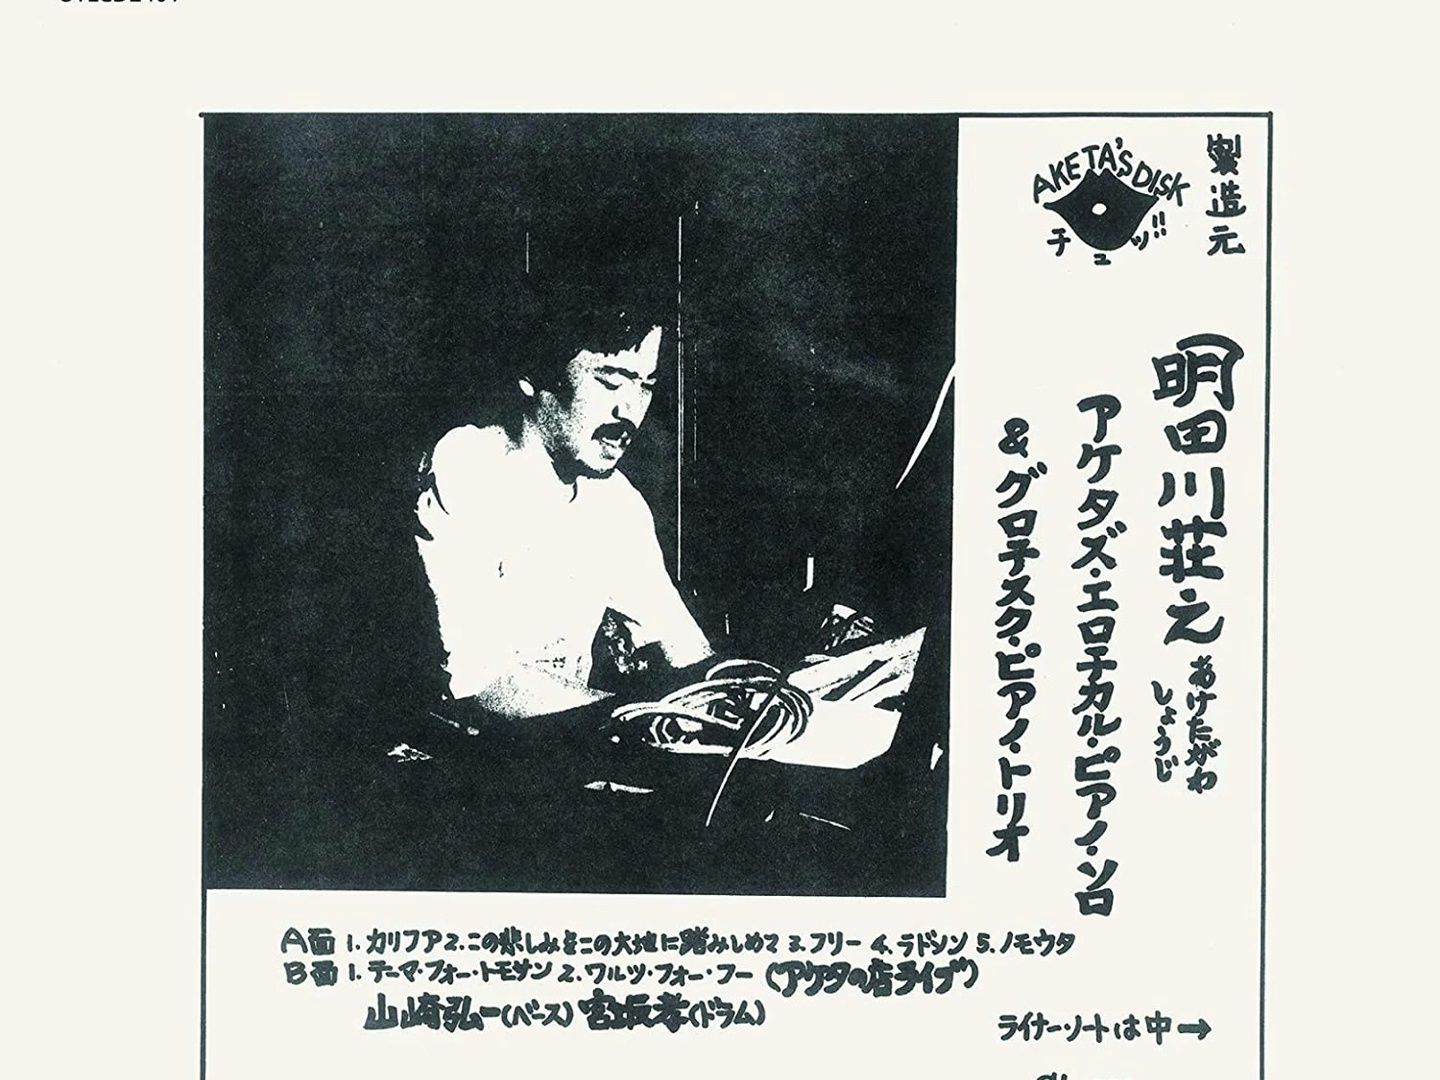 製造元
AKETA'S DISK
チュッ!!
明田川荘之
あけたがわ
しょうじ
アケタズ・エロチカル・ピアノ・ソロ
&グロテスク・ピアノ・トリオ
A面 1.カリファ 2.この悲しみをこの大地に踏みしめて 3.フリー 4.ラドシン 5.ノモウタ
B面 1.テーマ・フォー・トモサン 2.ワルツ・フォー・フー (アケタの店ライブ)
山崎弘一(ベース) 宮坂孝(ドラム)
ライナーノートは中→